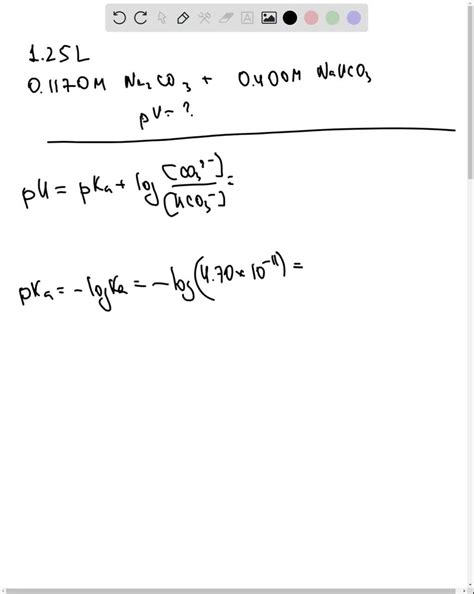 1.25L
0.1170M Na₂CO₃ + 0.400M NaHCO₃
pH = ?
pH = pKa + log [CO₃²⁻]/[HCO₃⁻] =
pKa = -logKa = -log(4.70 × 10⁻¹¹) =